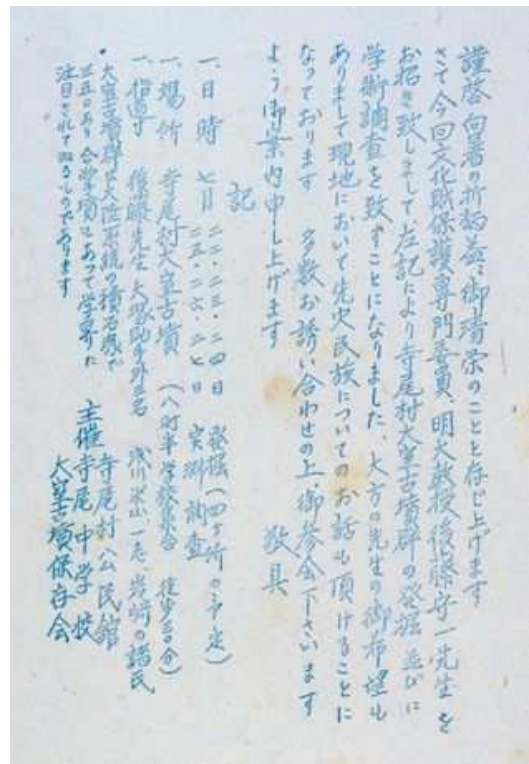 謹啓 向暑の折柄益々御清栄のことと存じ上げます
さて今回文化財保護専門委員、明大教授後藤守一先生を
お招き致しまして、左記により寺尾村大室古墳群の発掘並びに
学術調査を致すことになりました、大方の先生の御希望も
ありまして現地において先史民族についてのお話も頂けることに
なっております 多数お誘い合わせの上、御参会下さいます
よう御案内申し上げます
敬具
記
一、日時 七月 二二・二三・二四日 発掘(四ヶ所の予定)
二五・二六・二七日 実測調査
一、場所 寺尾村大室古墳 (八時半学校集合 徒歩三〇分)
一、指導 後藤先生 大塚助手外
岩崎の諸氏
・大室古墳群は大陸系統の積石塚で
あり合掌墳もあって学界に
注目されて居るものであります
主催
寺尾村公民館
寺尾中学校
大室古墳保存会